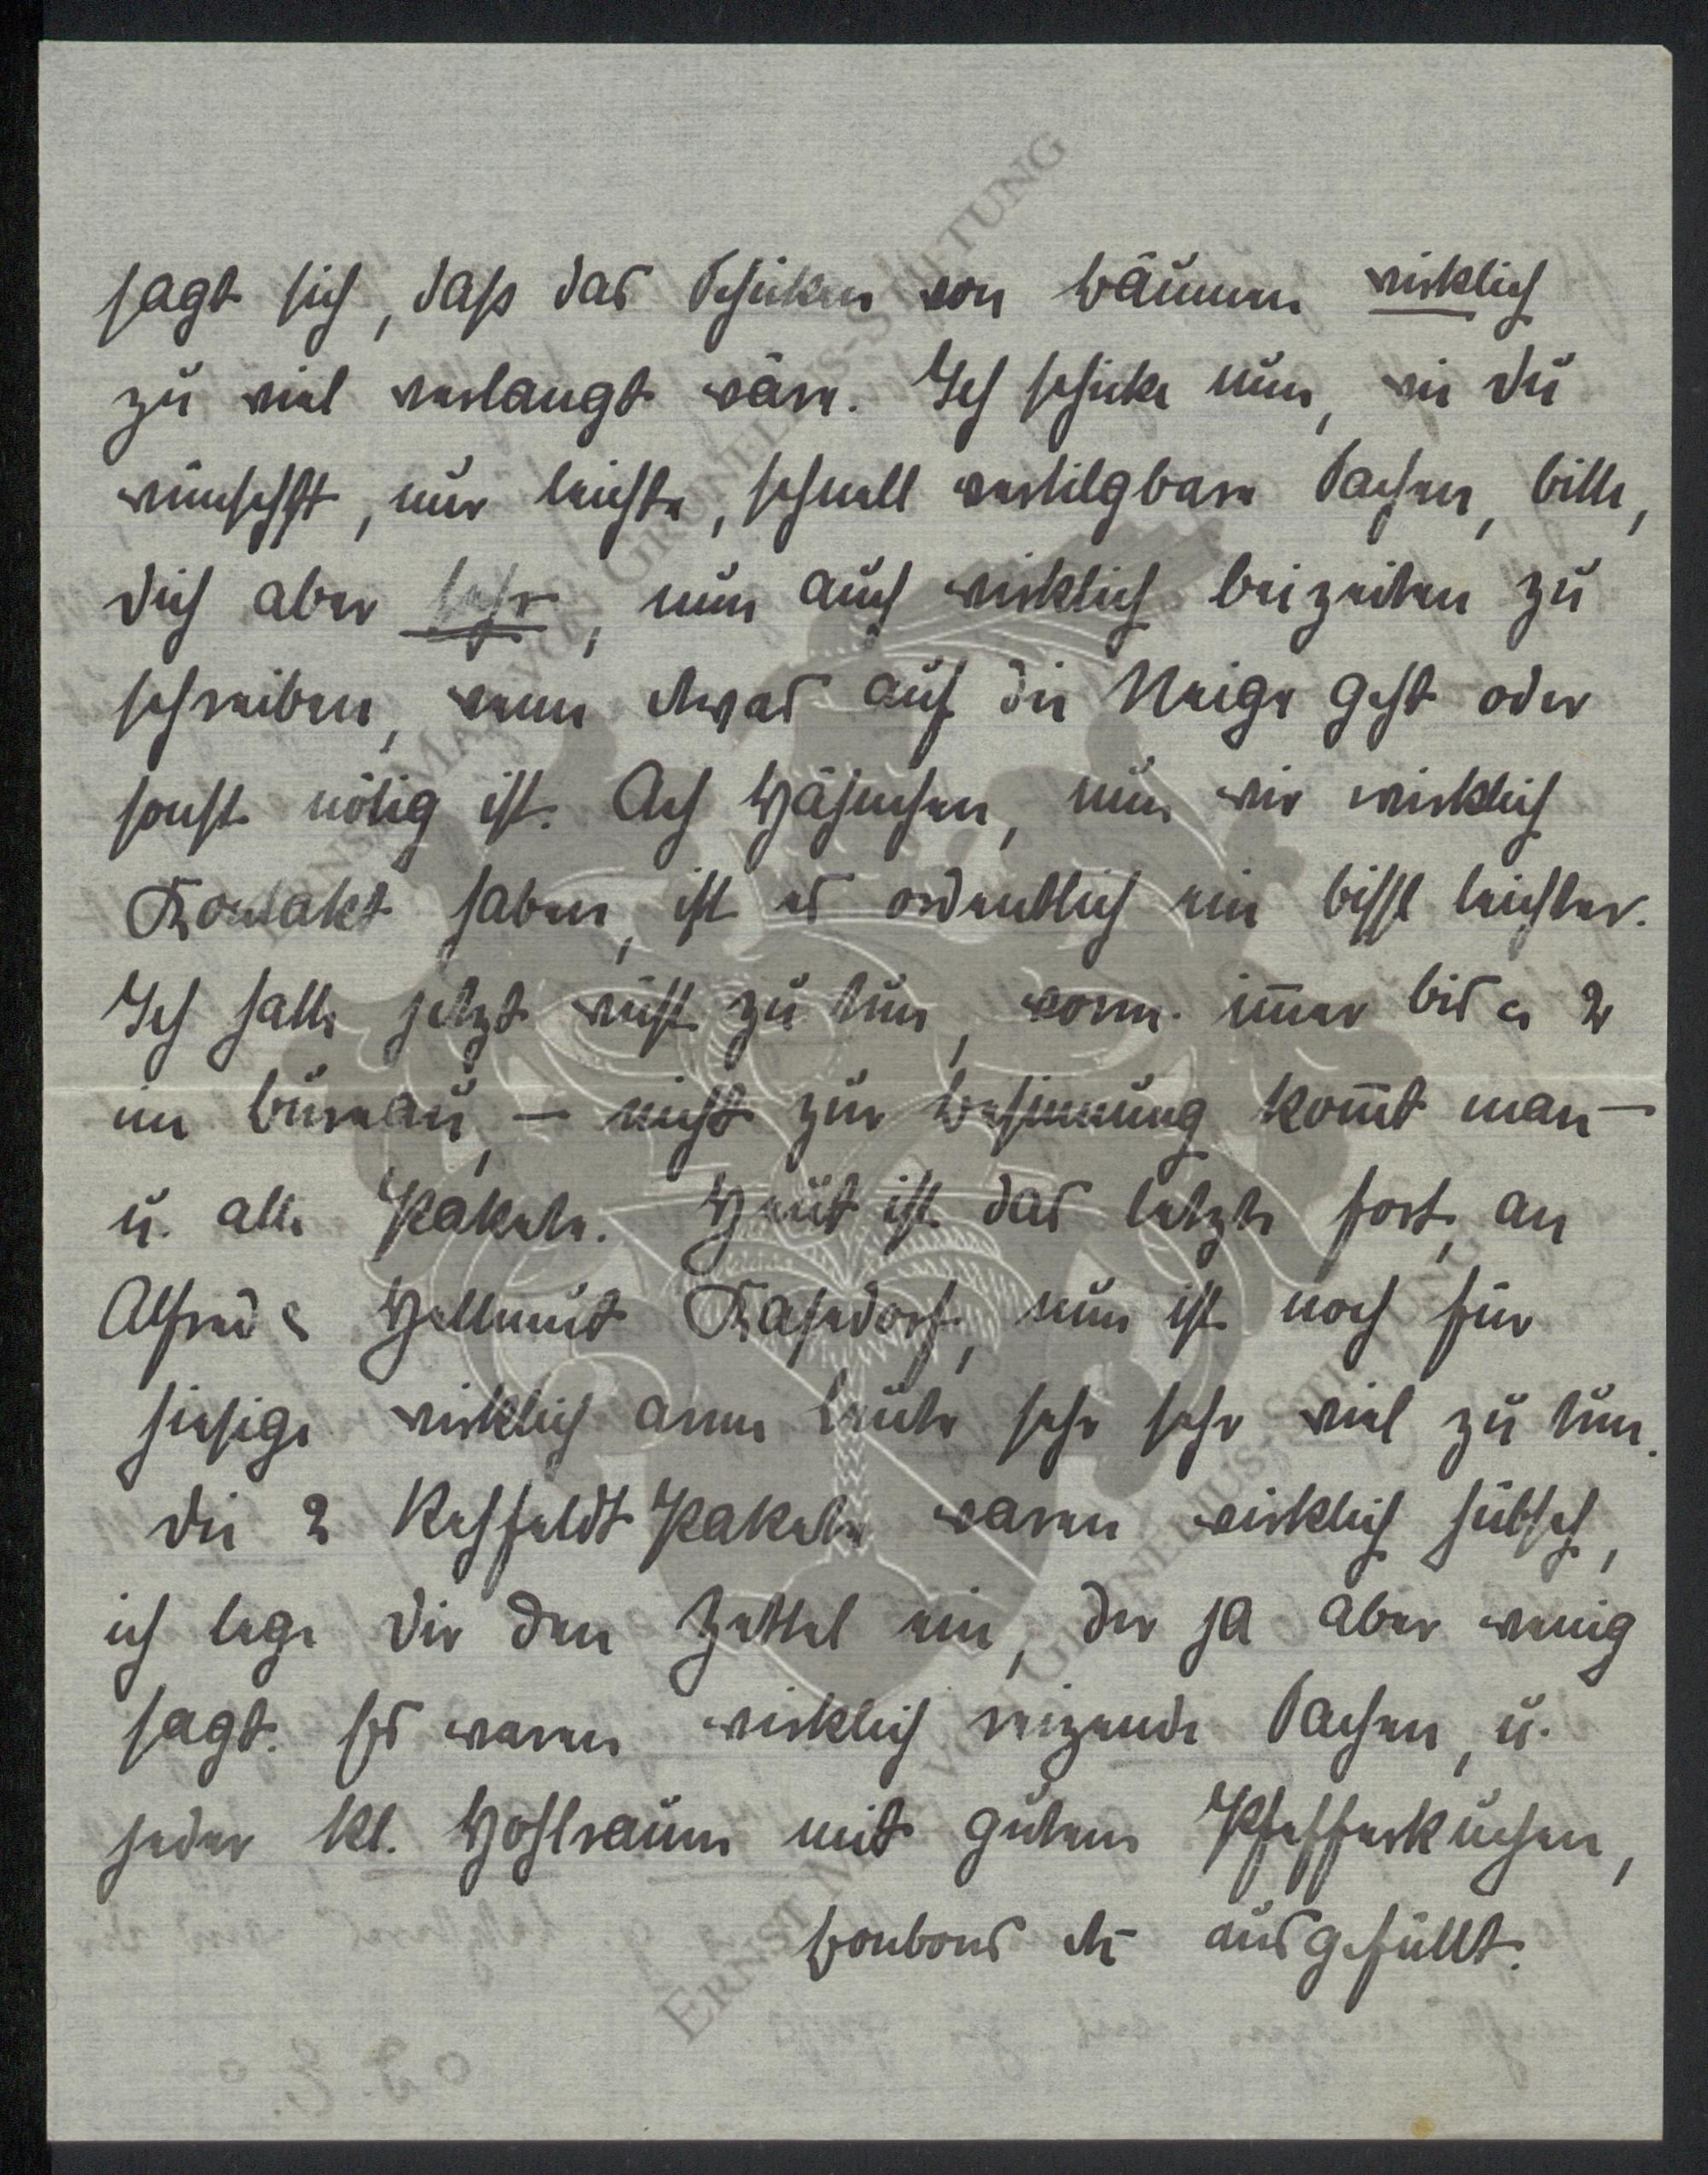 sagt sich, daß das Schicken von Bäumen wirklich
zu viel verlangt wäre. Ich schicke nun, wie du
wünschst, nur leichte, schnell vertilgbare Sachen, bitte,
dich aber sehr, nun auch wirklich beizeiten zu
schreiben, wenn etwas auf die Neige geht oder
sonst nötig ist. Ach Häschen, nun wir wirklich
Kontakt haben, ist es ordentlich ein bissl leichter.
Ich hatte jetzt wüst zu tun, vorm. im̄er bis 2
im Büreau, – nicht zur Besinnung kom̄t man –
u. alle Pakete. Heut ist das letzte fort, an
Alfred & Hellmut, nun ist noch für
hiesige wirklich arme Leute sehr sehr viel zu tun.
Die 2 Rehfeldt Pakete waren wirklich hübsch,
ich lege dir den Zettel ein, der ja aber wenig
sagt. Es waren wirklich reizende Sachen, u.
jeder kl. Hohlraum mit gutem Pfefferkuchen,
Bonbons etc ausgefüllt.
ERNST MAX VON GRUNELIUS-STIFTUNG
ERNST MAX VON GRUNELIUS-STIFTUNG